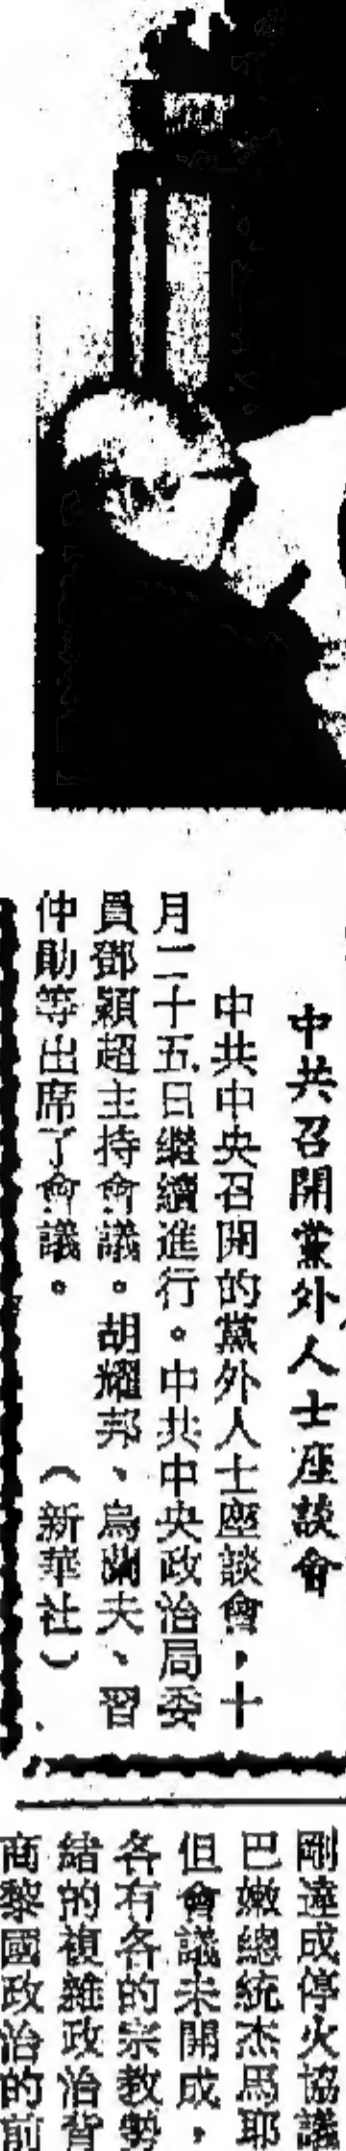 中共召開黨外人士座談會
中共中央召開的黨外人士座談會，十
月二十五日繼續進行。中共中央政治局委
員鄧穎超主持會議。胡耀邦、烏蘭夫、習
仲勛等出席了會議。　　（新華社）
剛達成停火協議
巴嫩總統杰馬耶
但會議未開成，
各有各的宗教勢
緒的複雜政治背
商黎國政治的前